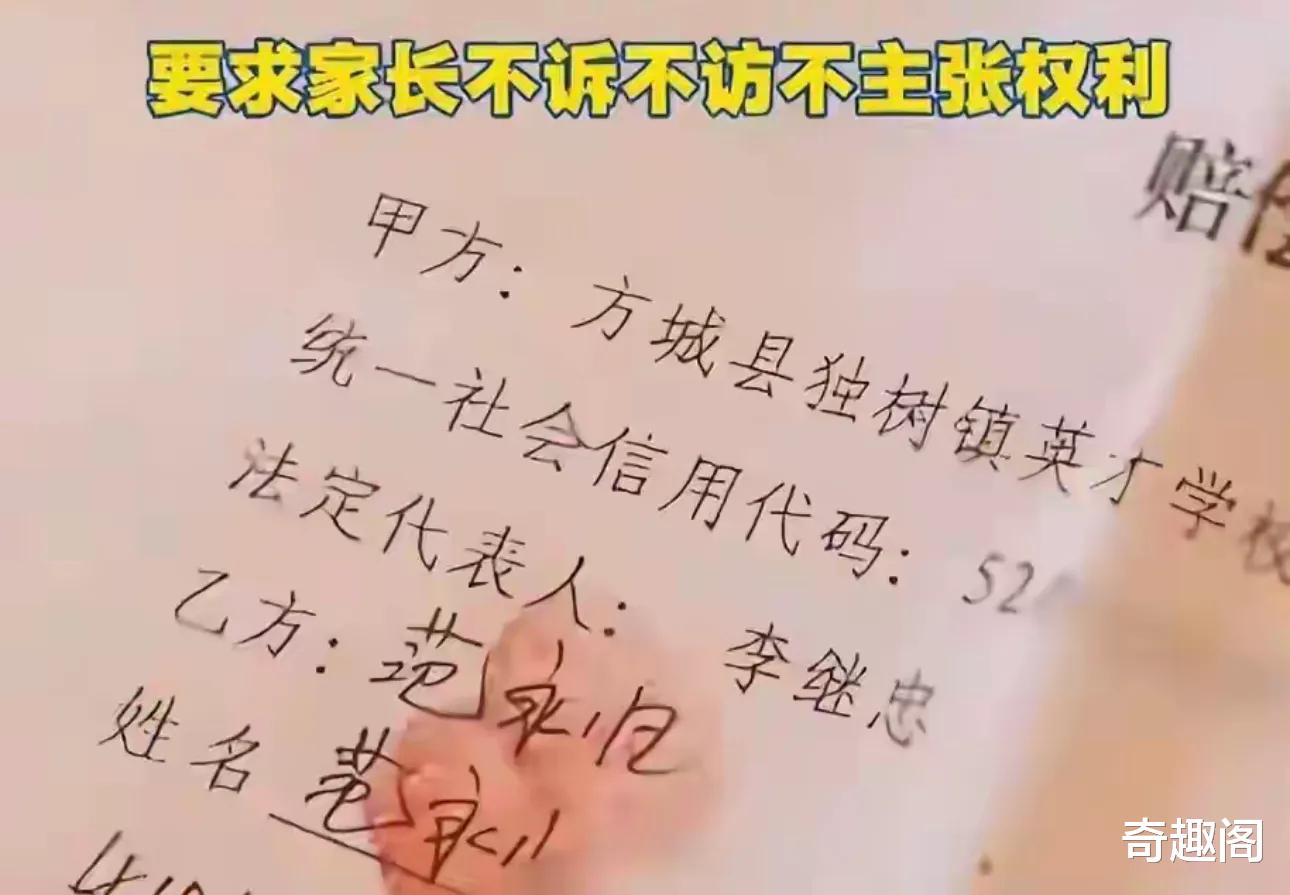 要求家长不诉不访不主张权利
赔偿
甲方：方城县独树镇英才学校
统一社会信用代码：52
法定代表人：李继忠
乙方：范
姓名 范
奇趣阁